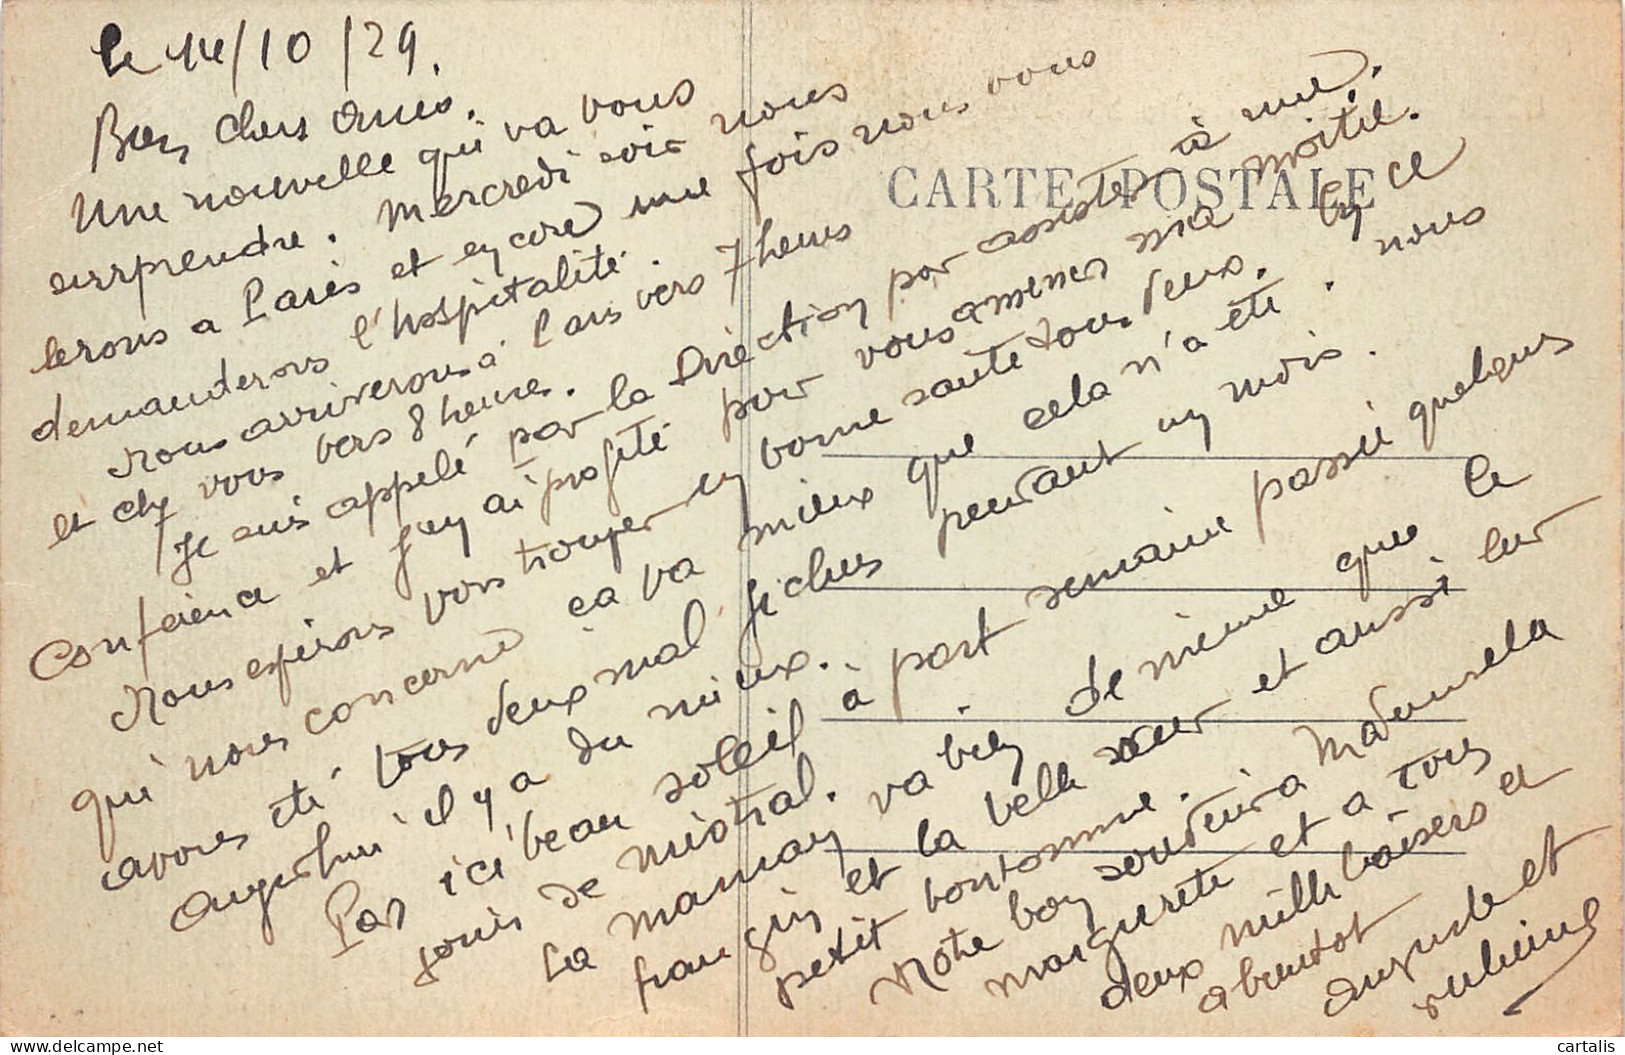 le 14/10/29.
Bien chers amis.
Une nouvelle qui va vous
surprendre. Mercredi soir nous
serons a Paris et encore une fois nous vous
demanderons l'hospitalité.
Nous arriverons à Paris vers 7 heures
et chez vous vers 8 heures.
Je suis appelé par la Direction par assister à une
Conférence et j'en ai profité pour vous amener ma moitié.
Nous espérons vous trouver en bonne santé tous deux. En ce
qui nous concerne ça va mieux que cela n'a été. nous
avons été tous deux mal fichus pendant un mois.
Aujourhui il y a du mieux.
Par ici beau soleil à part semaine passée quelques
jours de mistral.
La maman va bien de même que le
frangin et la belle sœur et aussi leur
petit bonhomme.
Notre bon souvenir a Mademsela
Marguerite et a tous
deux mille baisers et
a bientot
Auguste et
CARTE POSTALE
cartalis